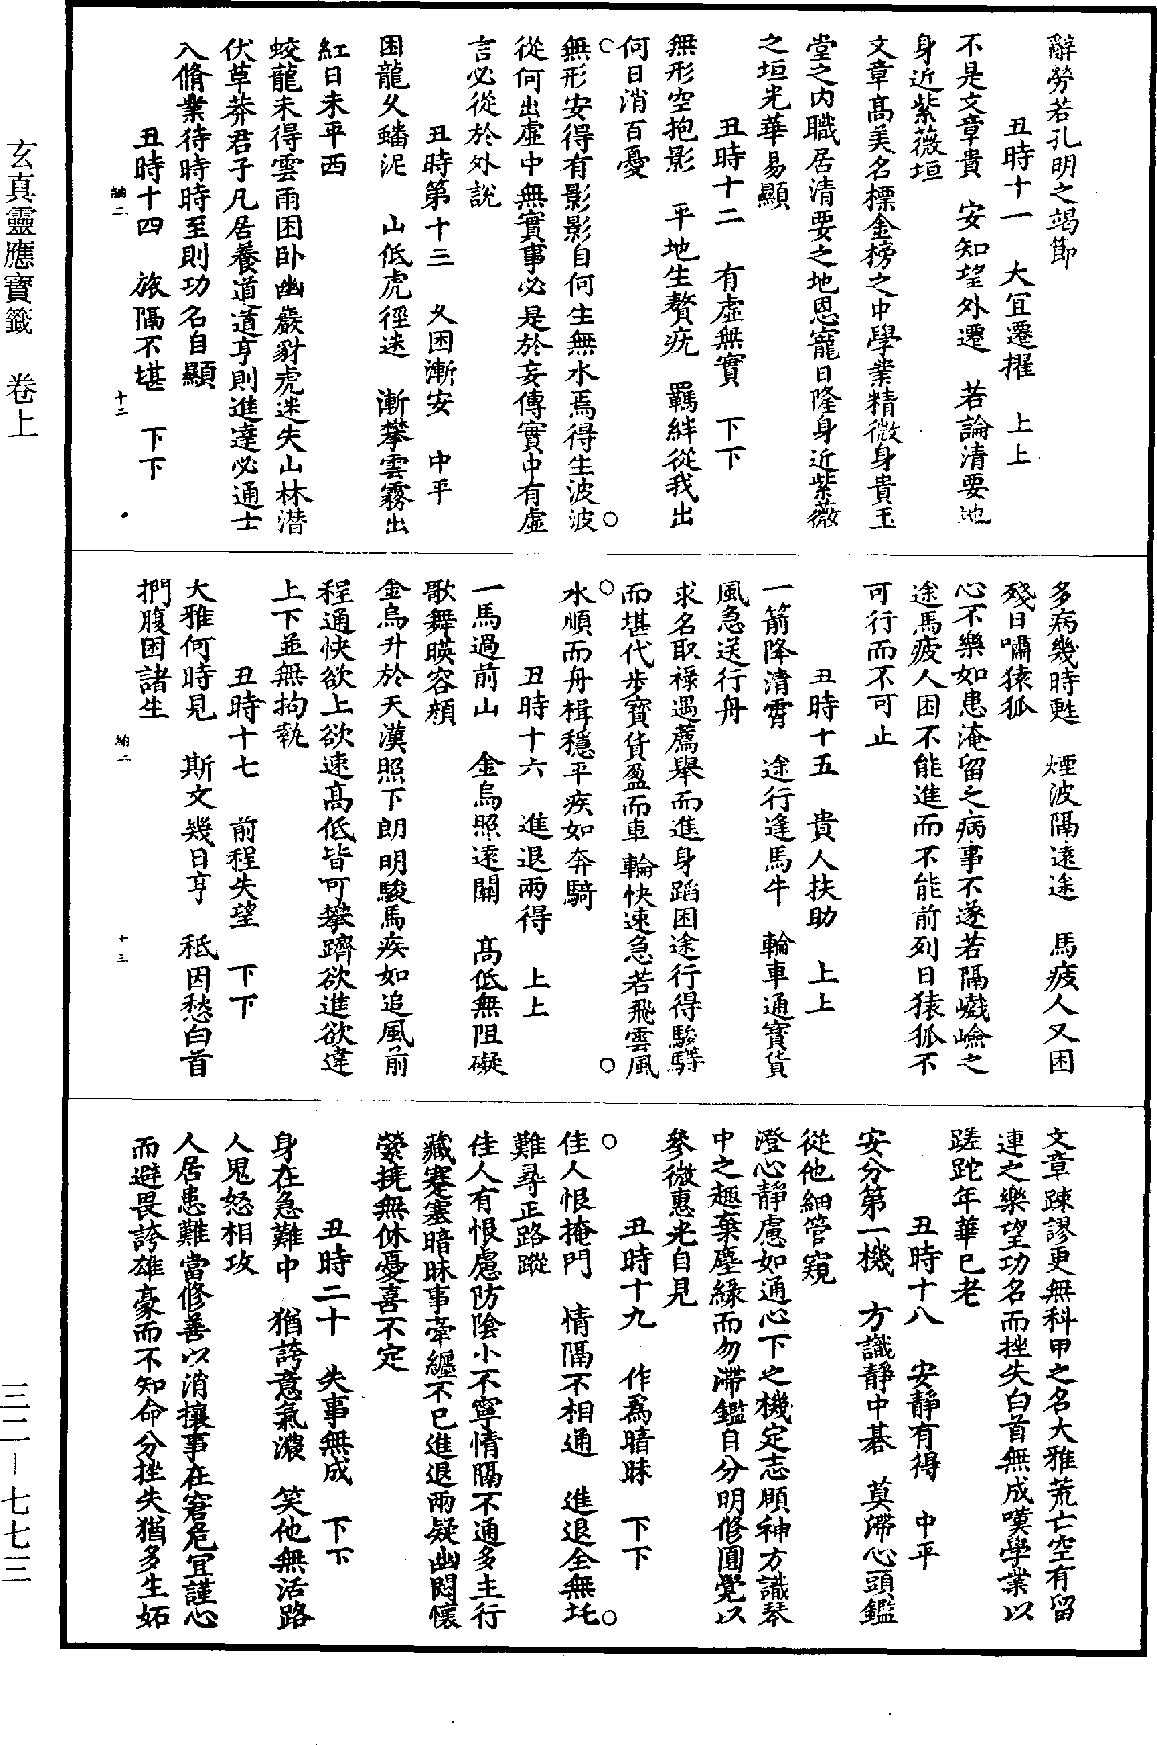 玄真靈應寶籤　卷上
三二—七七三
辭勞若孔明之竭節
丑時十一　大宜遷擢　上上
不是文章貴　安知望外遷　若論清要地
身近紫薇垣
文章高美名標金榜之中學業精微身貴玉
堂之內職居清要之地恩寵日隆身近紫薇
之垣光華易顯
丑時十二　有虛無實　下下
無形空抱影　平地生贅疣　羈絆從我出
何日消百憂
無形安得有影影自何生無水焉得生波波
從何出虛中無實事必是於妄傳實中有虛
言必從於外說
丑時第十三　久困漸安　中平
困龍久蟠泥　山低虎徑迷　漸攀雲霧出
紅日未平西
蛟龍未得雲雨困卧幽巖豺虎迷失山林潛
伏草莽君子凡居養道道亨則進達必通士
入脩業待時時至則功名自顯
丑時十四　旅隔不堪　下下
十二
多病幾時甦　煙波隔遠途　馬疲人又困
殘日嘯猿狐
心不樂如患淹留之病事不遂若隔巇嶮之
途馬疲人困不能進而不能前列日猿狐不
可行而不可止
丑時十五　貴人扶助　上上
一箭降清霄　途行逢馬牛　輪車通寶貨
風急送行舟
求名取祿遇薦舉而進身蹈困途行得駿驛
而堪代步寶貨盈而車輪快速急若飛雲風
水順而舟楫穩平疾如奔騎
丑時十六　進退兩得　上上
一馬過前山　金烏照遠關　高低無阻礙
歌舞暎容顏
金烏升於天漢照下朗明駿馬疾如追風前
程通快欲上欲速高低皆可攀躋欲進欲違
上下並無拘執
丑時十七　前程失望　下下
大雅何時見　斯文幾日亨　秪因愁白首
捫腹困諸生
十三
文章踈謬更無科甲之名大雅荒亡空有留
連之樂望功名而挫失白首無成嘆學業以
蹉跎年華已老
丑時十八　安靜有得　中平
安分第一機　方識靜中碁　莫滯心頭鑑
從他細管窺
澄心靜慮如通心下之機定志頤神方識琴
中之趣棄塵緣而勿滯鑑自分明修圓覺以
參微惠光自見
丑時十九　作為暗昧　下下
佳人恨掩門　情隔不相通　進退全無圫
難尋正路蹤
佳人有恨慮防陰小不寧情隔不通多主行
藏蹇塞暗昧事牽纏不已進退兩疑幽悶懷
縈撓無休憂喜不定
丑時二十　失事無成　下下
身在急難中　猶誇意氣濃　笑他無活路
人鬼怒相攻
人居患難當修善以消攘事在窘危宜謹心
而避畏誇雄豪而不知命分挫失猶多生妬